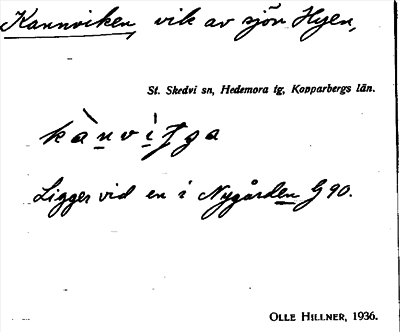 Kannviken, vik av sjön Hyen,
St. Skedvi sn, Hedemora tg, Kopparbergs län.
Ligger vid en i Nygården G 90.
OLLE HILLNER, 1936.